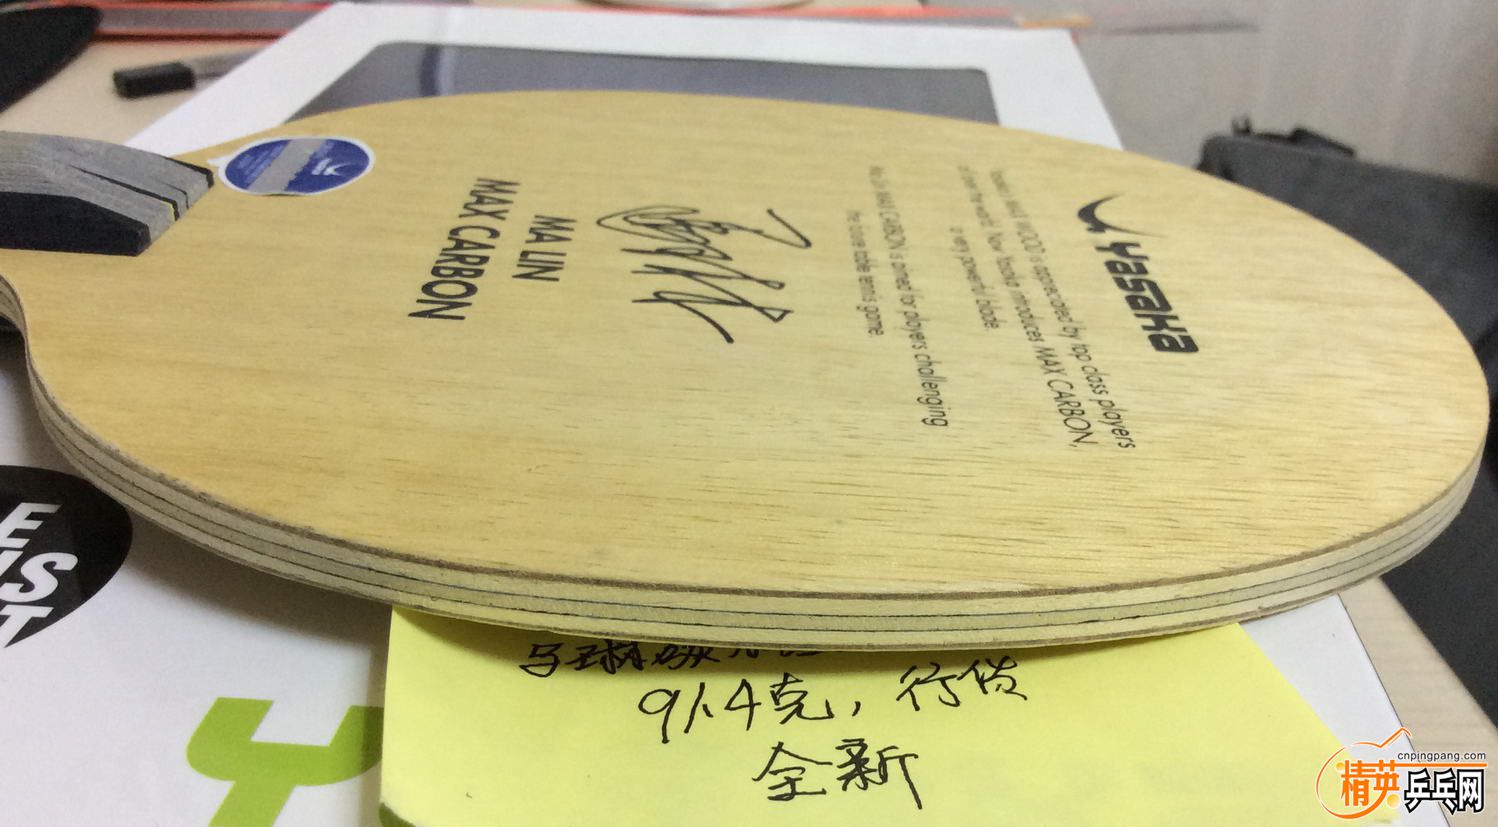 Yasaka
Yasaka's MAX WOOD is appreciated by top class players
all over the world. Now Yasaka introduces MAX CARBON,
a very powerful blade.
MA LIN MAX CARBON is aimed for players challenging
the future table tennis game.
MA LIN
MAX CARBON
91.4克，行货
全新
cnpingpang.com
精英乒乓网